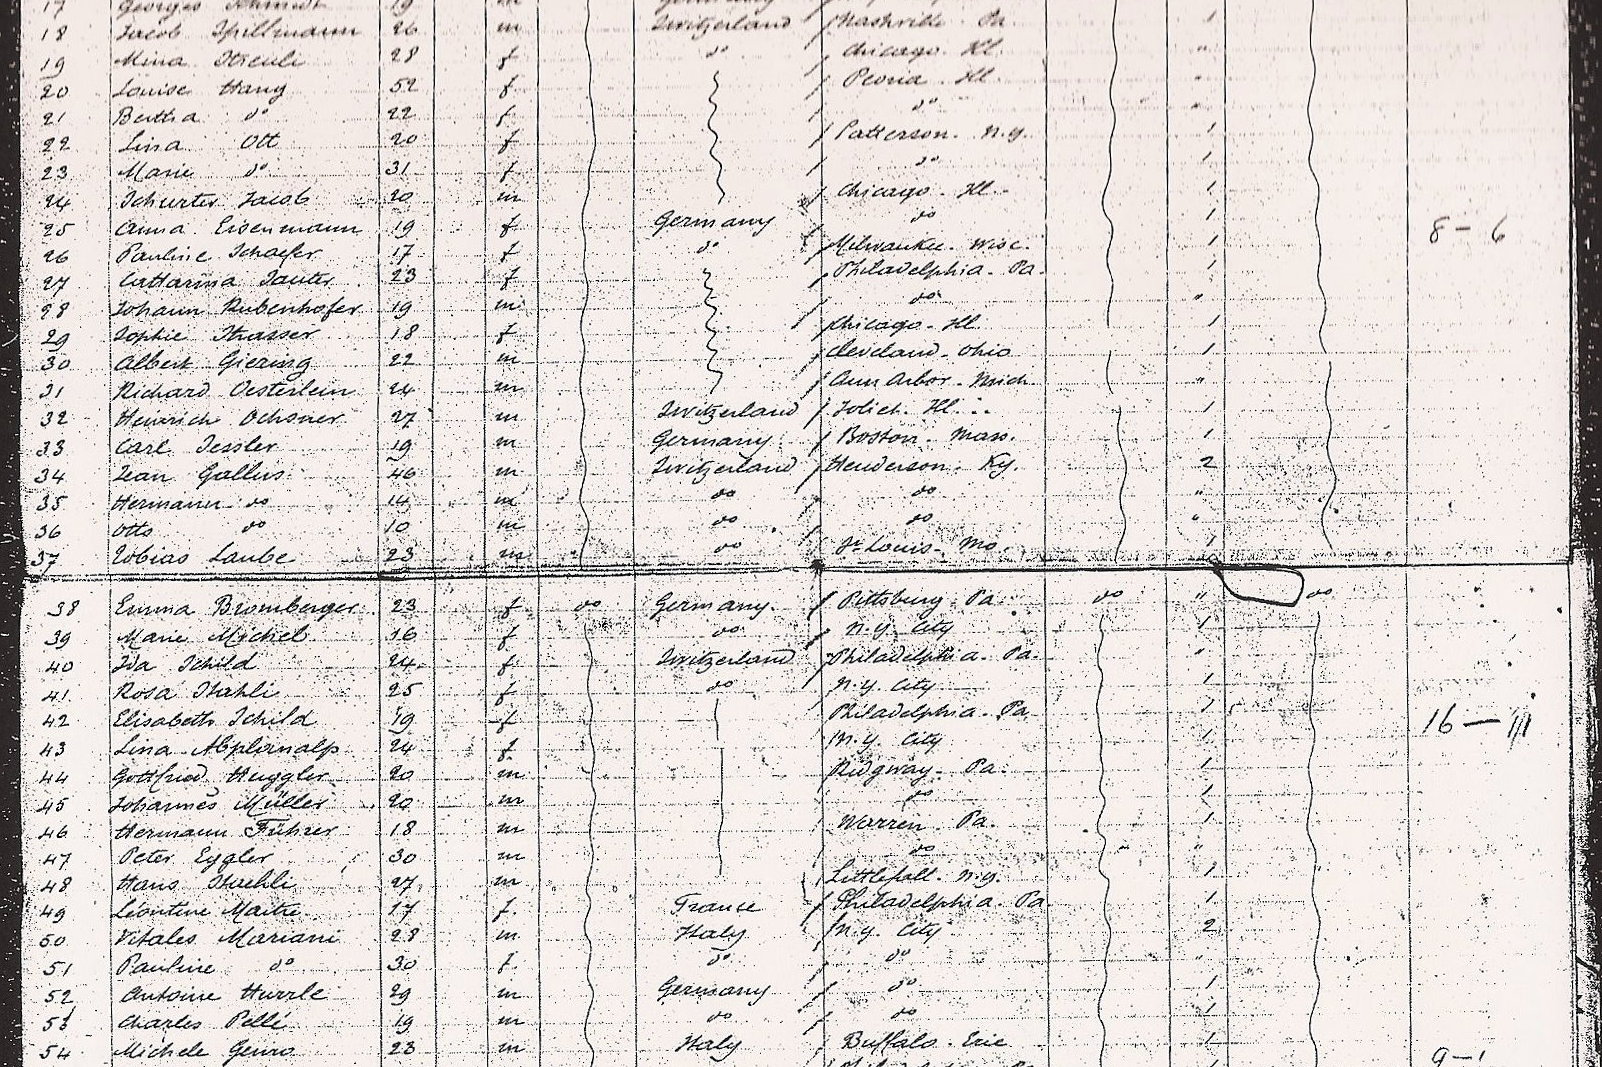 17 Georges Schmidt 19 m Germany
18 Jacob Spillmann 26 m Switzerland Nashville. Pa. 1
19 Mina 28 f do Chicago. Ill. "
20 Louise Hany 52 f Peoria. Ill. "
21 Bertha do 22 f do "
22 Lina Ott 20 f Patterson. N.Y. 1
23 Marie do 31 f do 1
24 Schurter Jacob 20 m Chicago. Ill. 1
25 Anna Eisenmann 19 f Germany do 1 8 – 6
26 Pauline Schaefer 17 f do Milwaukee. Wisc. 1
27 Catharina Sauter 23 f Philadelphia. Pa. 1
28 Johann Rubenhofer 19 m do "
29 Sophie Strasser 18 f Chicago. Ill. 1
30 Albert Giering 22 m Cleveland. Ohio 1
31 Richard Oesterlein 24 m Ann Arbor. Mich "
32 Heinrich Ochsner 27 m Switzerland Joliet. Ill. 1
33 Carl Jessler 19 m Germany Boston. Mass. 1
34 Jean Gallus 46 m Switzerland Henderson. Ky. 2
35 Hermann do 14 m do do "
36 Otto do 10 m do do "
37 Tobias Laube 23 m do St Louis. Mo. 1
38 Emma Bromberger 23 f do Germany. Pittsburg. Pa. do " do
39 Marie Michel 16 f do N.Y. City 1
40 Ida Schild 24 f Switzerland Philadelphia. Pa. "
41 Rosa Stahli 25 f do N.Y. City 1
42 Elisabeth Schild 19 f Philadelphia. Pa. 1 16 –
43 Lina Abplanalp 24 f N.Y. City 1
44 Gottfried Huggler 20 m Ridgway. Pa. 1
45 Johannes Müller 20 m do 1
46 Hermann Führer 18 m Warren. Pa. 1
47 Peter Eggler 30 m do "
48 Hans Staehli 27 m Littlefall. N.Y. 1
49 Léontine Maitre 17 f. France Philadelphia. Pa 1
50 Vitales Mariani 28 m Italy N.Y. City 2
51 Pauline do 30 f. do do "
52 Antoine Hurrle 29 m Germany do 1
53 Charles Pellé 19 m do do 1
54 Michele 23 m Italy Buffalo. Erie 1 9–1